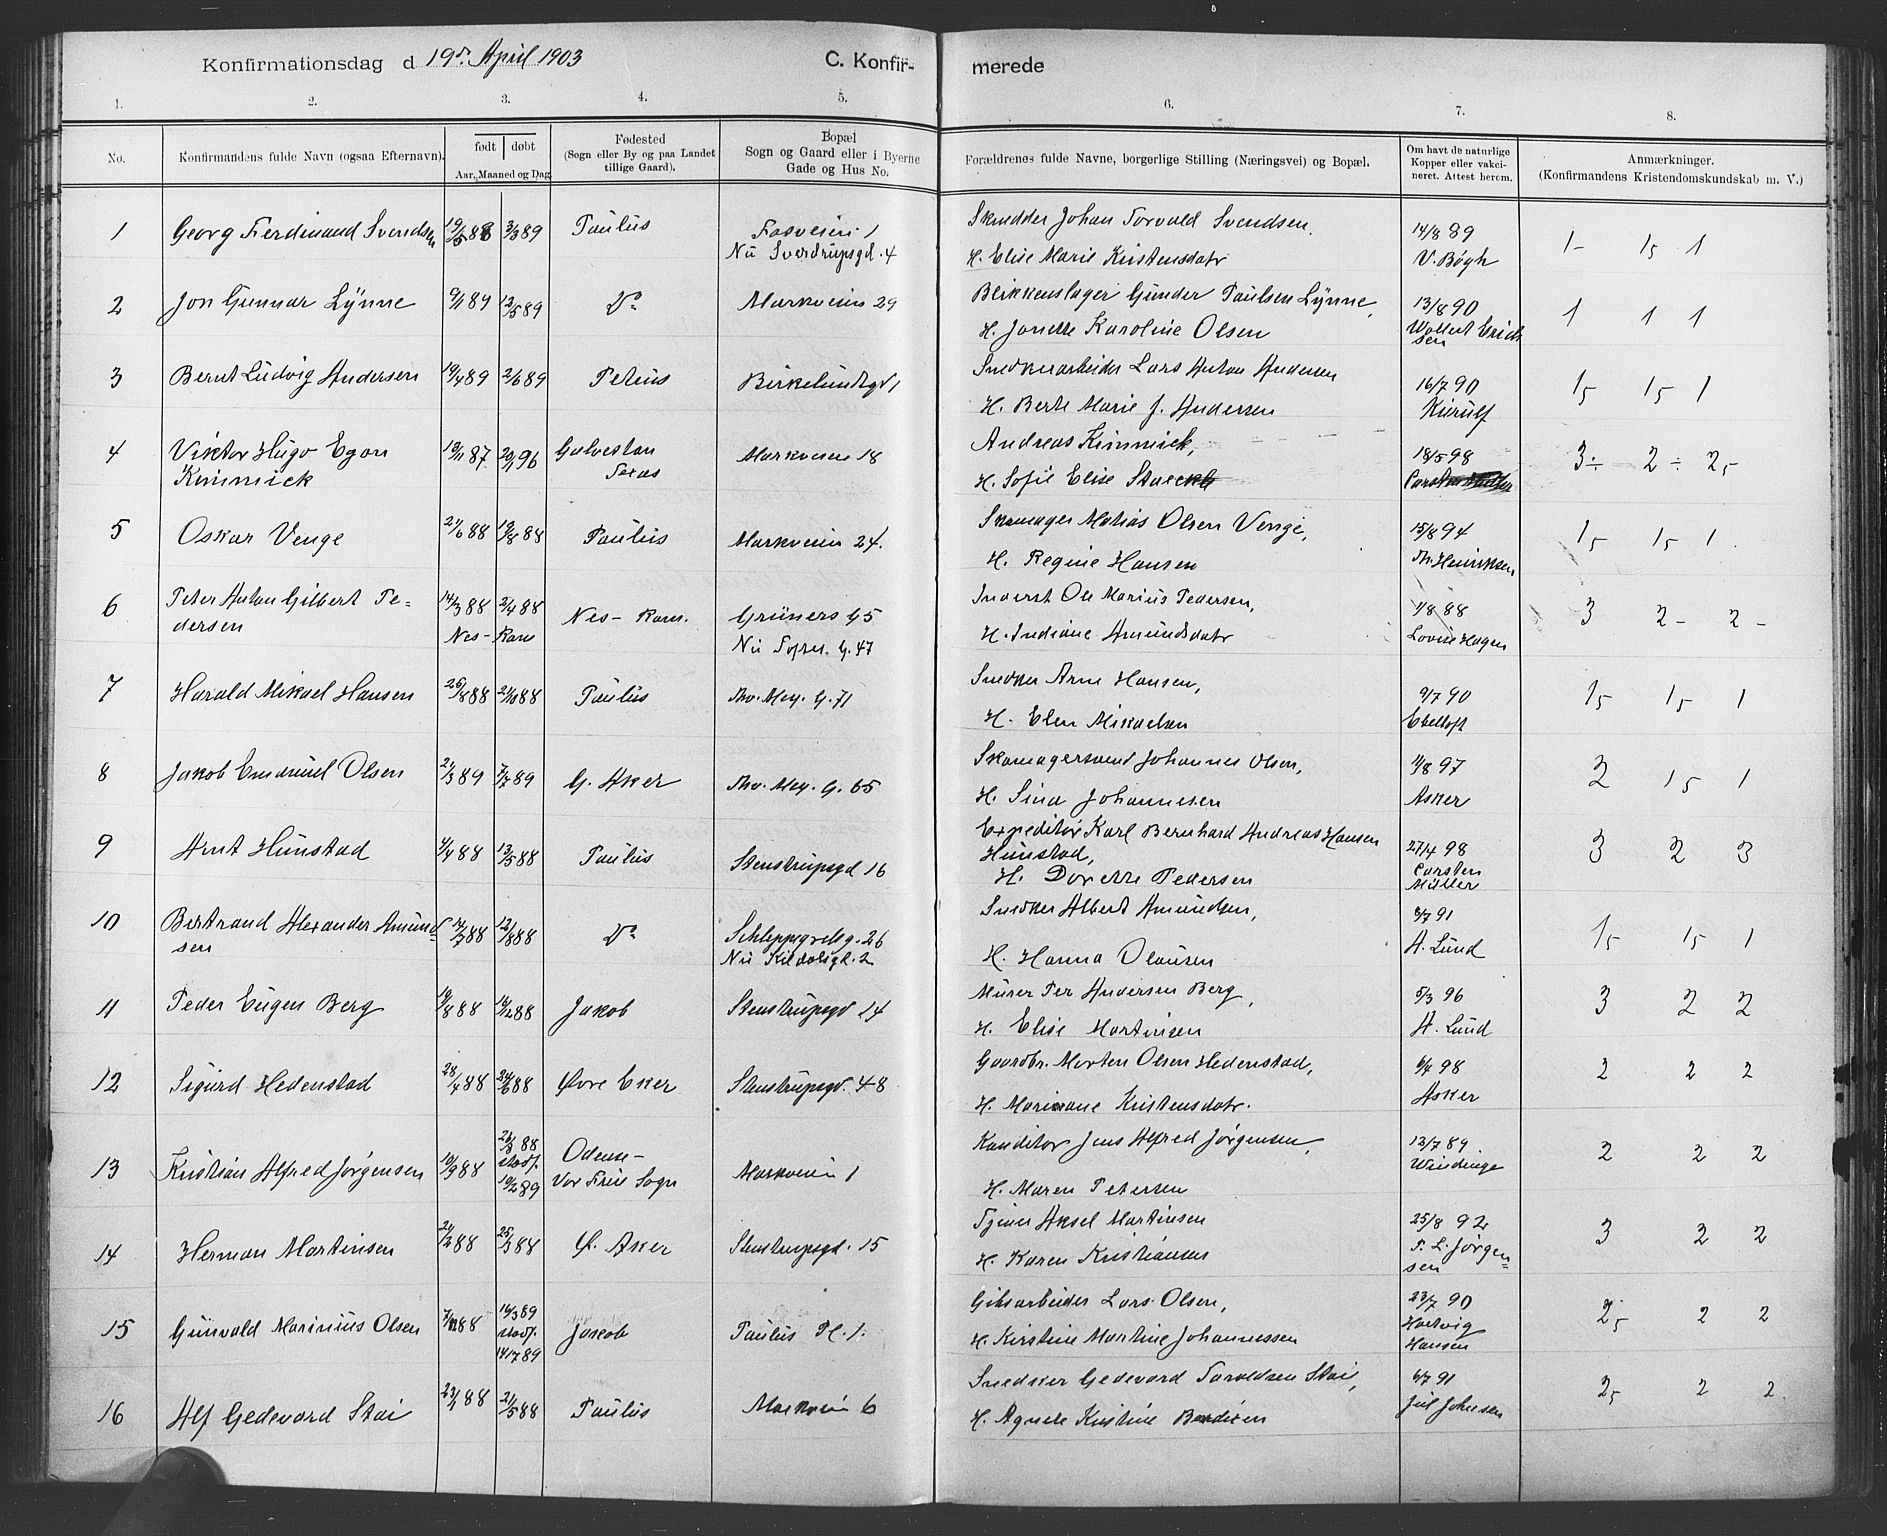 Konfirmationsdag d 19de April 1903 C. Konfir- merede
1. 2. 3. 4. 5. 6. 7. 8.
No.
Konfirmandens fulde Navn (ogsaa Efternavn).
født døbt
Aar, Maaned og Dag.
Fødested
(Sogn eller By og paa Landet
tillige Gaard).
Bopæl
Sogn og Gaard eller i Byerne
Gade og Hus No.
Forældrenes fulde Navne, borgerlige Stilling (Næringsvei) og Bopæl.
Om havt de naturlige
Kopper eller vakci-
neret. Attest herom.
Anmærkninger.
(Konfirmandens Kristendomskundskab m. V.)
1 Georg Ferdinand Svendsen 3/3 89 Paulus Fosveien 1
Nu Sverdrupsgd. 4
Skrædder Johan Torvald Svendsen,
H. Elise Marie Kristensdatr
14/8 89
V. Bøgh
1- 15 1
2 Jon Gunnar Lynne 9/1 89 12/5 89 Do Markveien 29
Blikkenslager Gunder Paulsen Lynne,
H. Janette Karoline Olsen
13/8 90
Wollert Erich
sen
1 1 1
3 Bernt Ludvig Andersen 19/4 89 2/6 89 Petrus Birkelundsgd 1
Snedkerarbeider Lars Anton Andersen
H. Berte Marie J. Andersen
16/7 90
Kierulf
15 15 1
4 Viktor Hugo Egon
Kimmick
87 96 Galveston
Texas
Markveien 18
Andreas Kimmick,
H. Sofie Elise
18/5 98
3÷ 2÷ 25-
5 Oskar Venge 21/6 88 19/8 88 Paulus Markveien 24.
Skomager Matias Olsen Venge,
H. Regine Hansen
15/8 94
Th. Henriksen
15 15 1
6 Peter Anton Gilbert Pe-
dersen
14/3 88 2/4 88
Nes-Rom
Nes-Rom. Grüners G 5
Nu Toftes G. 47
Inderst Ole Marius Pedersen,
H. Indiane Amundsdatr
1/8 88
Lovise Hagen
3 2- 2-
7 Harald Mikael Hansen 26/8 88 21/10 88 Paulus Thv. Mey. G. 71
Snedker Arne Hansen,
H. Elen Mikaelsen
9/7 90
Ebeltoft
15 15 1
8 Jakob Emanuel Olsen 21/3 89 7/7 89 G. Aker Thv. Mey. G. 65
Skomagersvend Johannes Olsen,
H. Sina Johannesen
11/8 97
Asker
2 15 1
9 Arnt Hunstad 4/4 88 13/5 88 Paulus Stenstrupsgd 16
Expeditør Karl Bernhard Andreas Hansen
Hunstad,
H. Dorette Pedersen
27/4 98
Carsten
Müller
3 2 3
10 Bertrand Alexander Amund-
sen
12/8 88 Do Schleppegrelsg. 26
Nu Kildalsgd. 2
Snedker Albert Amundsen,
H. Hanna Olausen
8/7 91
A. Lund
15 15 1
11 Peder Eugen Berg 19/8 88 Jakob Stenstrupsgd 14
Murer Per Andersen Berg,
H. Elise Martinsen
5/3 96
A. Lund
3 2 2
12 Sigurd Hedenstad 28/4 88 24/6 88 Øvre Eker Stenstrupsgd. 48
Gaardbr. Morten Olsen Hedenstad,
H. Mariane Kristensdatr.
6/4 98
Asker
2 2 2
13 Kristian Alfred Jørgensen 88
stadf.
89
Odense-
Vor Frue Sogn
Markveien 1
Konditor Jens Alfred Jørgensen,
H. Maren Petersen
12/7 89
Windinge
2 2 2
14 Herman Martinsen 21/2 88 25/3 88 Ø. Aker Stenstrupsgd. 15
Tjener Aksel Martinsen
H. Karen Kristiansen
25/8 92
T. L. Jørgen-
sen
3 2 2
15 Gunvald Marinius Olsen 7/11 88 16/3 89
stadf.
14/7 89
Jakob Paulus Pl. 1.
Gibsarbeider Lars Olsen,
H. Kirstine Martine Johannessen
23/7 90
Hartvig
Hansen
25 2 2
16 Alf Gedevard Stai 88 21/5 88 Paulus Markveien 6
Snedker Gedevard Torvaldsen Stai,
H. Agnete Kristine Bendixen
6/7 91
Jul Johnsen
25 2 2.